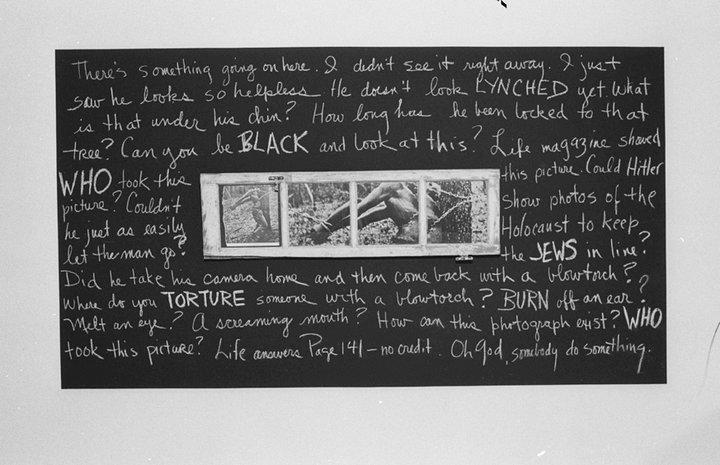 There's something going on here. I didn't see it right away. I just
saw he looks so helpless. He doesn't look LYNCHED yet. What
is that under his chin? How long has he been locked to that
tree? Can you be BLACK and look at this? Life magazine showed
WHO took this
picture? Couldn't
he just as easily
let the man go?
this picture. Could Hitler
show photos of the
Holocaust to keep
the JEWS in line?
Did he take his camera home and then come back with a blowtorch?
Where do you TORTURE someone with a blowtorch? BURN off an ear?
Melt an eye? A screaming mouth? How can this photograph exist? WHO
took this picture? Life answers Page 141 – no credit. Oh God, somebody do something.